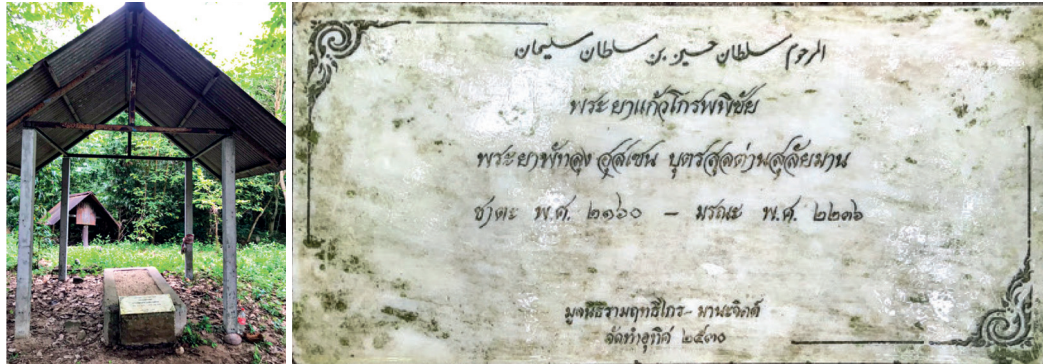 المرحوم سلطان حسين بن سلطان سليمان
พระยาแก้วโกรพพิชัย
พระยาพัทลุง ฮุสเซน บุตรสุลต่านสุลัยมาน
ชาตะ พ.ศ. ๒๑๖๐ – มรณะ พ.ศ. ๒๒๓๖
มูลนิธิรามฤทธิไกร - มานะจิตต์
จัดทำอุทิศ ๒๕๓๐